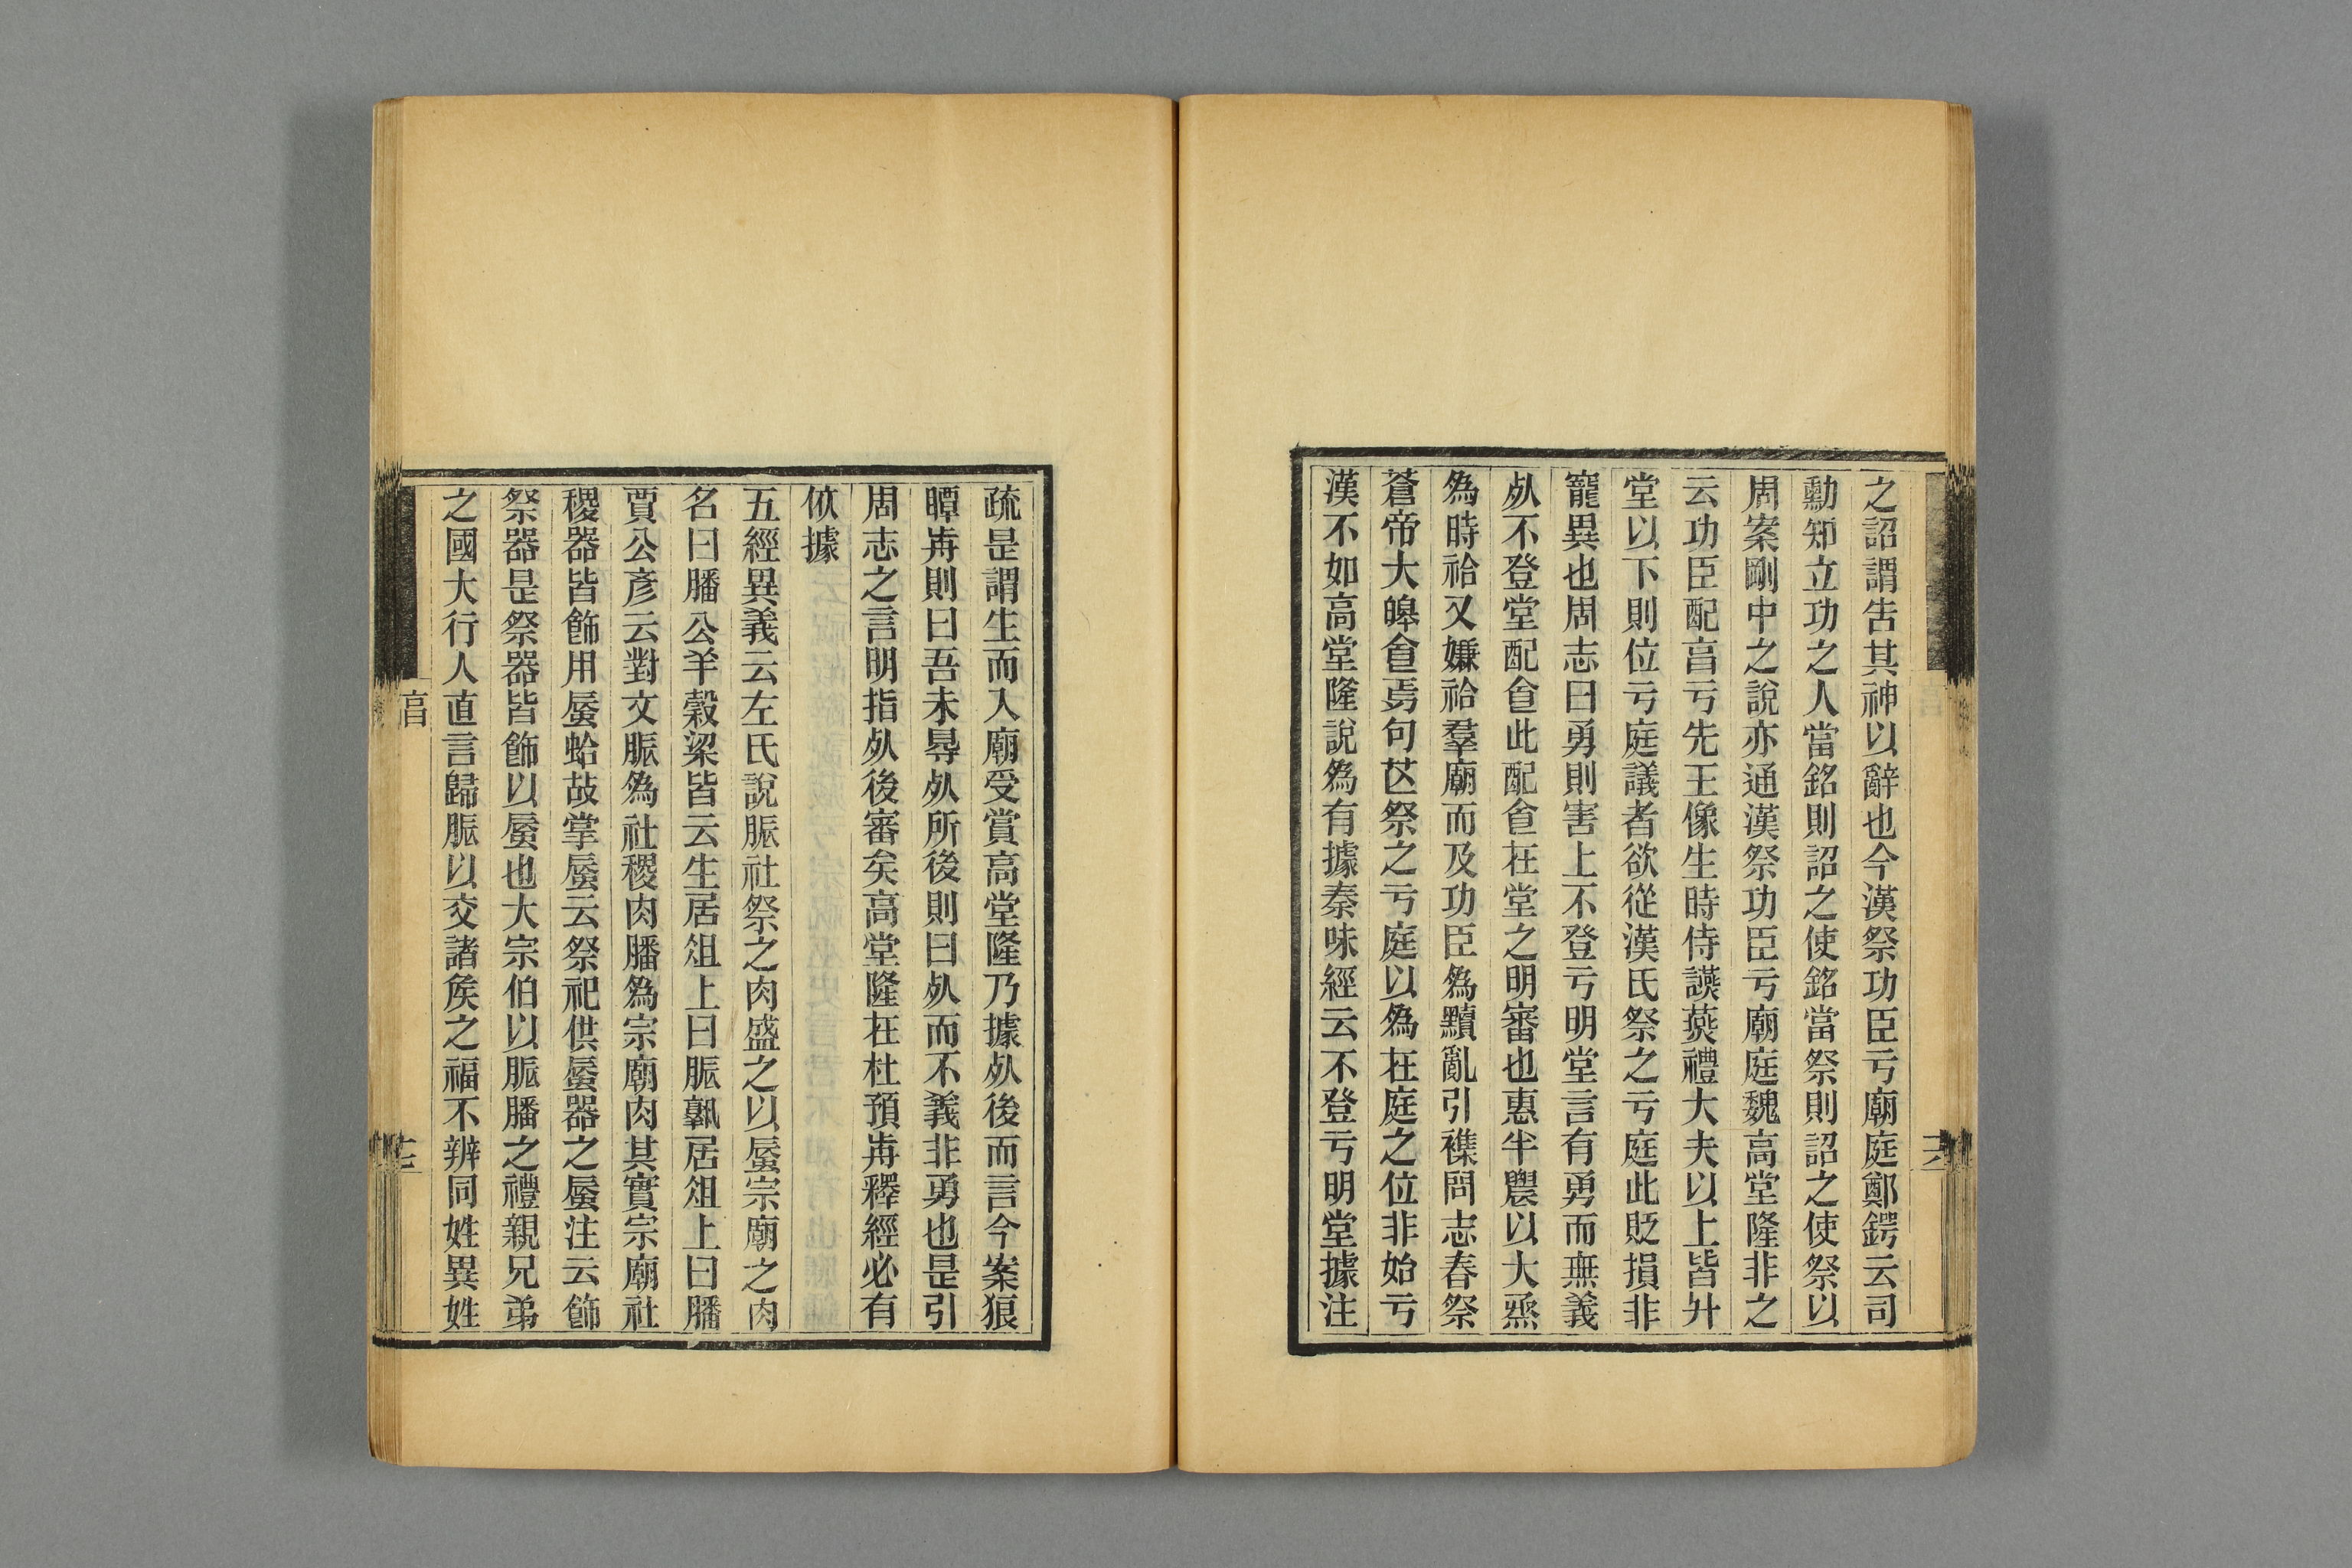 之詔謂告其神以辭也今漢祭功臣亏廟庭鄭鍔云司
勳知立功之人當銘則詔之使銘當祭則詔之使祭以
周案剛中之說亦通漢祭功臣亏廟庭魏高堂隆非之
云功臣配亯亏先王像生時侍讌䕼禮大夫以上皆升
堂以下則位亏庭議者欲從漢氏祭之亏庭此貶損非
寵異也周志曰勇則害上不登亏明堂言有勇而無義
𣦸不登堂配食此配食在堂之明審也惠半農以大烝
為時祫又嫌祫羣廟而及功臣為黷亂引襍問志春祭
蒼帝大皞食焉句芒祭之亏庭以為在庭之位非始亏
漢不如高堂隆說為有據秦味經云不登亏明堂據注
疏是謂生而入廟受賞高堂隆乃據𣦸後而言今案狼
瞫歬則曰吾未㝵𣦸所後則曰𣦸而不義非勇也是引
周志之言明指𣦸後審矣高堂隆在杜預歬釋經必有
依據
五經異義云左氏說脤社祭之肉盛之以蜃宗廟之肉
名曰膰公羊穀梁皆云生居俎上曰脤孰居俎上曰膰
賈公彥云對文脤為社稷肉膰為宗廟肉其實宗廟社
稷器皆飾用蜃蛤故掌蜃云祭祀供蜃器之蜃注云飾
祭器是祭器皆飾以蜃也大宗伯以脤膰之禮親兄弟
之國大行人直言歸脤以交諸矦之福不辨同姓異姓
亯
十七